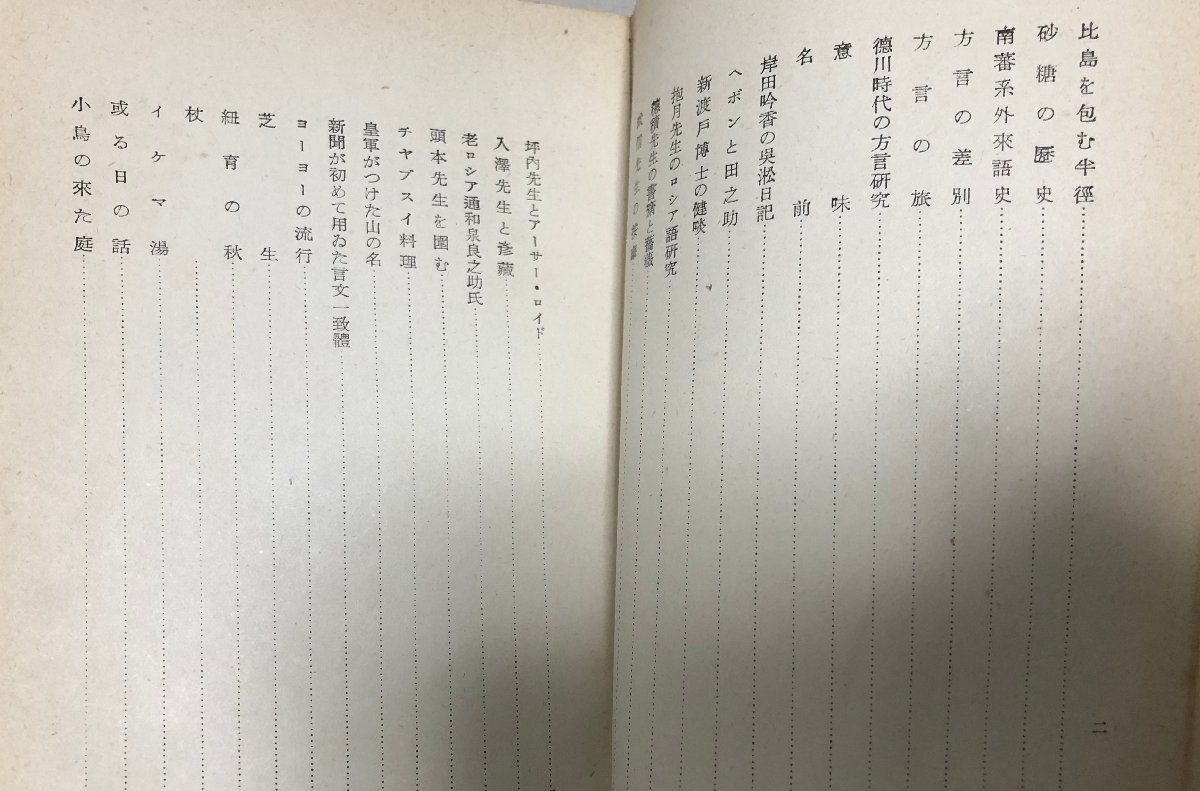 比島を包む半徑
砂糖の歷史
南蕃系外來語史
方言の差別
方言の旅
德川時代の方言研究
意味
名前
岸田吟香の吳淞日記
ヘボンと田之助
新渡戸博士の健啖
抱月先生のロシア語研究
穗積先生の書齋と薔薇
先生の
二
坪內先生とアーサー・ロイド
入澤先生と彥藏
老ロシア通和泉良之助氏
頭本先生を圍む
チヤブスイ料理
皇軍がつけた山の名
新聞が初めて用ゐた言文一致體
ヨーヨーの流行
芝生
紐育の秋
杖
イケマ湯
或る日の話
小鳥の來た庭